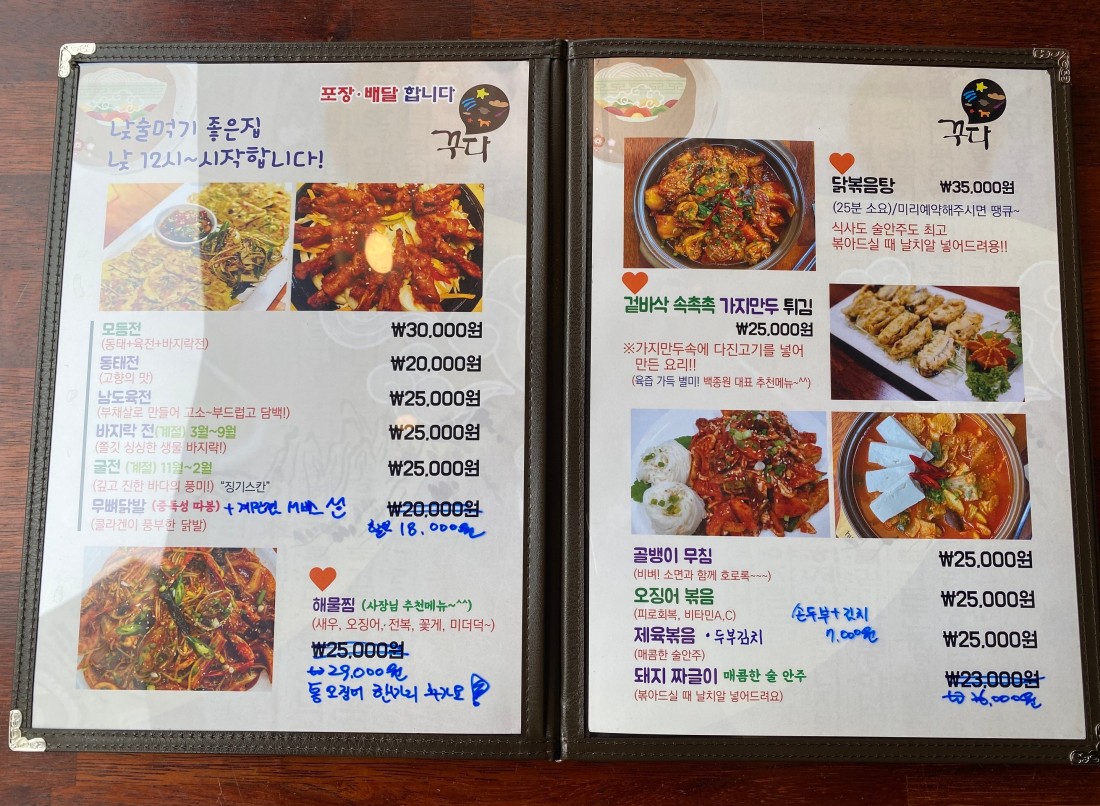 포장·배달 합니다
꾸다
낮술먹기 좋은집
낮 12시~시작합니다!
모듬전 ₩30,000원
(동태+육전+바지락전)
동태전 ₩20,000원
(고향의 맛)
남도육전 ₩25,000원
(부채살로 만들어 고소~부드럽고 담백!)
바지락 전(계절) 3월~9월 ₩25,000원
(쫄깃 싱싱한 생물 바지락!)
굴전 (계절) 11월~2월 ₩25,000원
(깊고 진한 바다의 풍미!) "징기스칸"
무뼈닭발 (중독성 따봉) + 계란전 ₩20,000원
(콜라겐이 풍부한 닭발) 18,000원
해물찜 (사장님 추천메뉴~^^)
(새우, 오징어, 전복, 꽃게, 미더덕~)
₩25,000원
₩29,000원
통오징어 한마리
꾸다
닭볶음탕 ₩35,000원
(25분 소요)/미리예약해주시면 땡큐~
식사도 술안주도 최고
볶아드실 때 날치알 넣어드려용!!
겉바삭 속촉촉 가지만두 튀김
₩25,000원
※가지만두속에 다진고기를 넣어
만든 요리!!
(육즙 가득 별미! 백종원 대표 추천메뉴~^^)
골뱅이 무침 ₩25,000원
(비벼! 소면과 함께 호로록~~~)
오징어 볶음 ₩25,000원
(피로회복, 비타민A,C)
손두부+김치
7,000원
제육볶음 · 두부김치 ₩25,000원
(매콤한 술안주)
돼지 짜글이 매콤한 술 안주 ₩23,000원
(볶아드실 때 날치알 넣어드려요) ₩26,000원